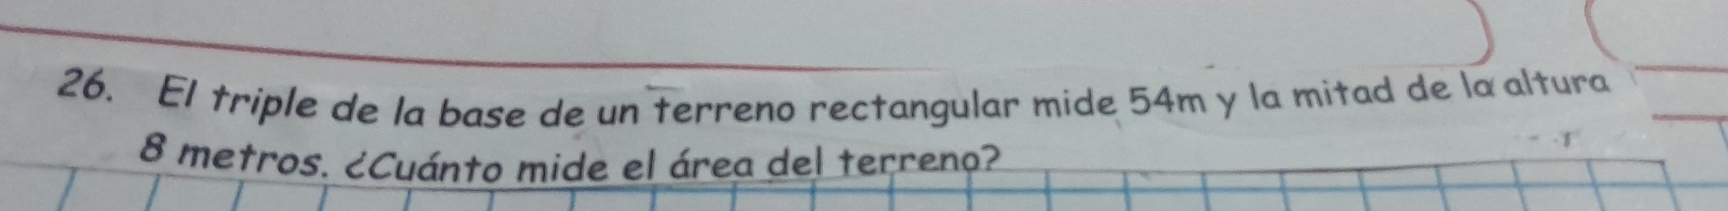 26. El triple de la base de un terreno rectangular mide 54m y la mitad de la altura
8 metros. ¿Cuánto mide el área del terreno?